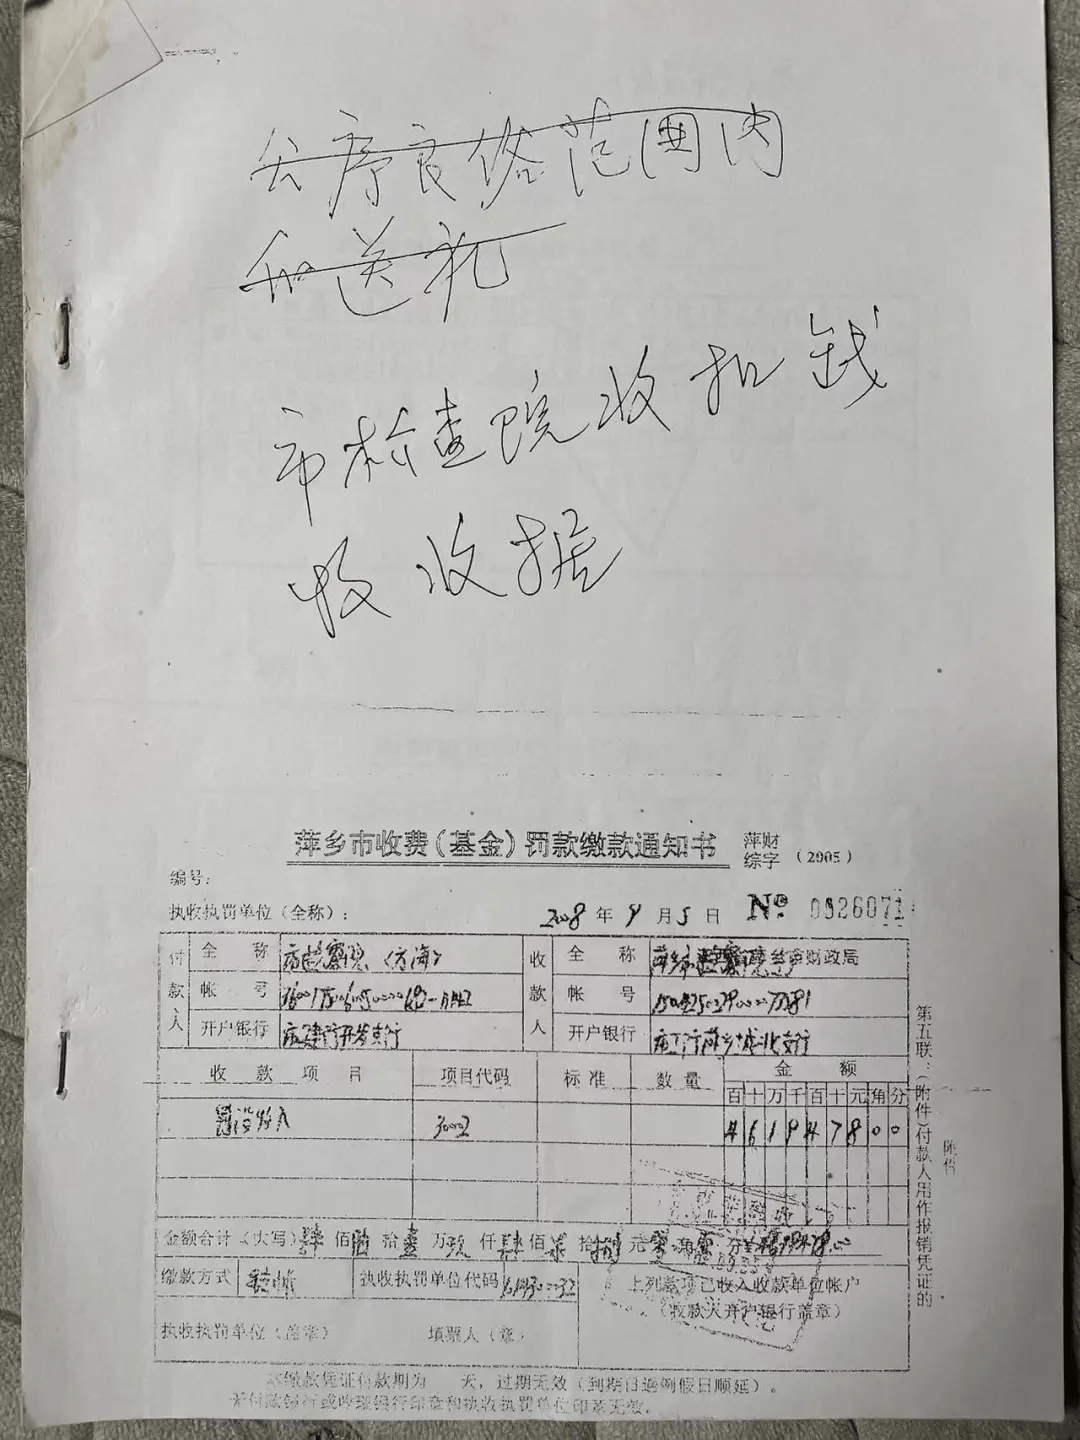 公序良俗范围内
和送礼
市检查院收扣钱
收收据
萍乡市收费(基金)罚款缴款通知书 萍财综字 (2005)
编号:
执收执罚单位(全称): 2008 年 9 月 5 日 No 0326071
付款人 全称 市检察院(方海) 收款人 全称 财政局
帐号 帐号
开户银行 市建行开发支行 开户银行
收款项目 项目代码 标准 数量 金额
百 十 万 千 百 十 元 角 分
罚没收入 ¥ 6 1 9 4 7 8 0 0
金额合计(大写) 佰 拾 万 仟 佰 拾 元 角 分
缴款方式 转帐 执收执罚单位代码 上列款项已收入收款单位帐户
(收款人开户银行盖章)
执收执罚单位(盖章) 填票人(章)
本缴款凭证付款期为 天,过期无效(到期日遇例假日顺延)。
无付款银行或收款银行印章和执收执罚单位印章无效.
第五联:(附件)付款人用作报销凭证的
附件